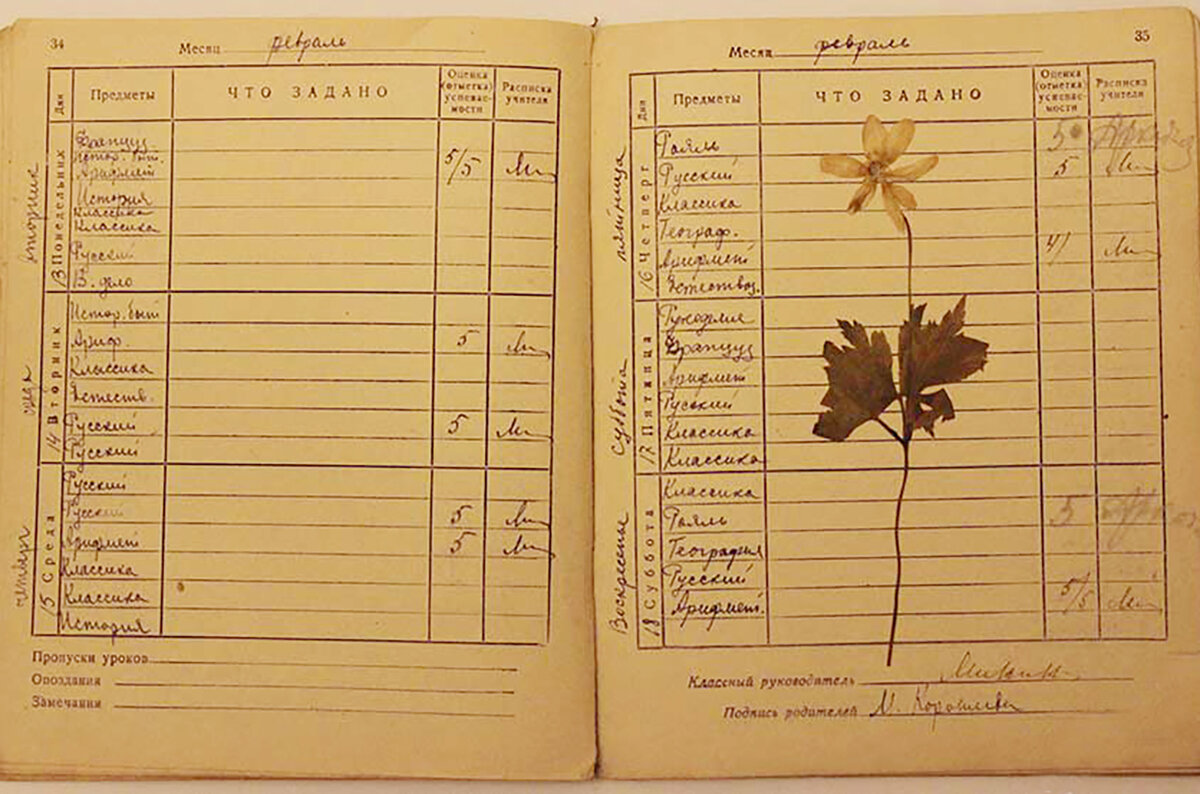 34
Месяц февраль
Дни
Предметы
ЧТО ЗАДАНО
Оценка (отметка) успеваемости
Расписка учителя
вторник
13 Понедельник
Француз.
Истор. быт.
Арифмет
5/5
История
Классика
Классика
Русский
В. дело
среда
14 Вторник
Истор. быт
Ариф. 5
Классика
Естеств.
Русский 5
Русский
четверг
15 Среда
Русский
Русский 5
Арифмет 5
Классика
Классика
История
Пропуски уроков
Опоздания
Замечания
35
Месяц февраль
Дни
Предметы
ЧТО ЗАДАНО
Оценка (отметка) успеваемости
Расписка учителя
пятница
16 Четверг
Рояль 5
Русский 5
Классика
Географ.
Арифмет 4/
Естествоз.
суббота
17 Пятница
Рукоделие
Француз
Арифмет
Русский
Классика
Классика
Воскресенье
18 Суббота
Классика
Рояль 5
География
Русский
Арифмет. 5/5
Классный руководитель
Подпись родителей М.